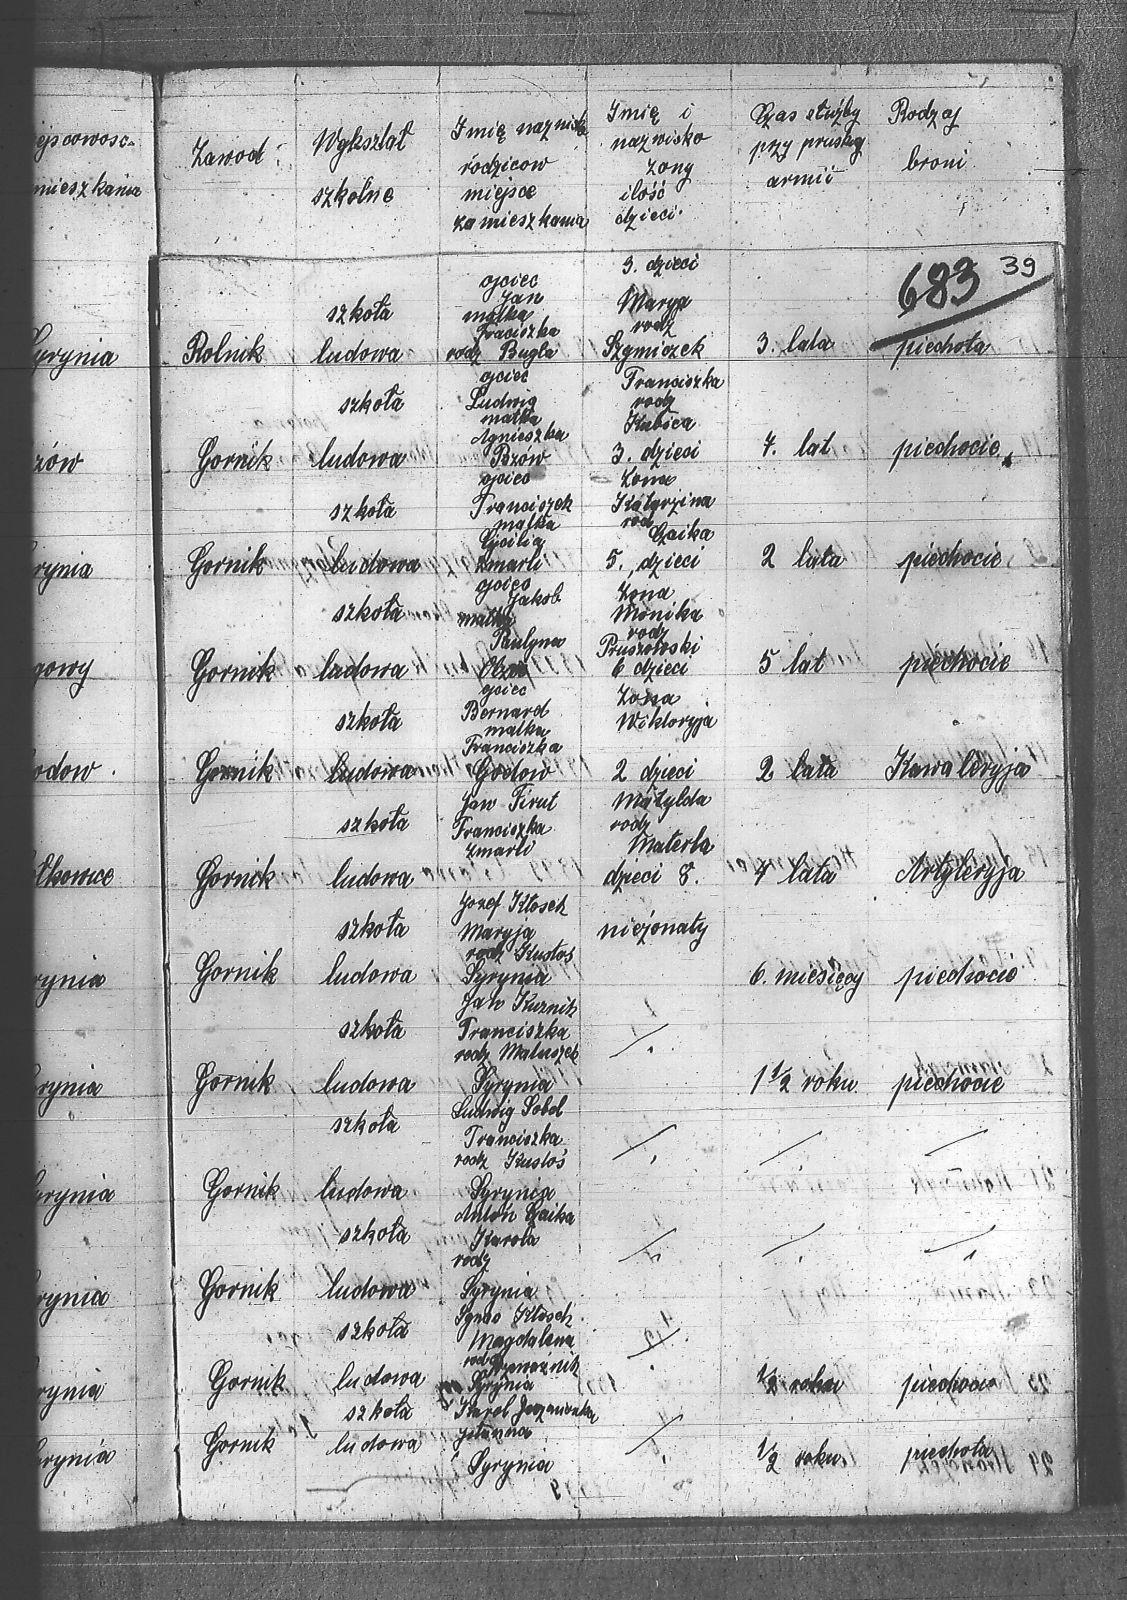 Zawod
Wykształ
szkolne
Imię nazwisko
rodzicow
miejsce
zamieszkania
Imię i
nazwisko
żony
ilość
dzieci
Czas służby
przy pruskiej
armii
Rodzaj
broni
683
39
Syrynia
Rolnik
szkoła
ludowa
ojciec
Jan
matka
Franciszka
rodz Bugla
3. dzieci
Marya
rodz
Szymiczek
3. lata
piechota
Gornik
szkoła
ludowa
ojciec
Ludwig
matka
Agnieszka
Bzów
Franciszka
rodz
Kubica
3. dzieci
7. lat
piechocie
rynia
Gornik
szkoła
ludowa
ojciec
Franciszek
matka
zmarli
Żona
Katarzina
rod
Czaika
5. dzieci
2 lata
piechocie
gowy
Gornik
szkoła
ludowa
ojciec
Jakob
matka
Paulyna
Żona
Monika
rodz
6 dzieci
5 lat
piechocie
odow
Gornik
szkoła
ludowa
ojciec
Bernard
matka
Franciszka
Godow
Żona
Wiktoryja
2 dzieci
2 lata
Kawaleryja
Gornik
szkoła
ludowa
Jan
Franciszka
zmarli
Matylda
rodz
Materla
dzieci 8.
4 lata
Artyleryja
rynia
Gornik
szkoła
ludowa
Jozef Kłosek
Maryja
rodz Kustoś
Syrynia
nieżonaty
6. miesięcy
piechocie
rynia
Gornik
szkoła
ludowa
Jan
Franciszka
rodz Matuszek
Syrynia
1 1/2 roku
piechocie
Syrynia
Gornik
szkoła
ludowa
Ludwig Sobol
Franciszka
rodz Kustoś
Syrynia
rynia
Gornik
szkoła
ludowa
Anton Czaika
Karola
rodz
Syrynia
rynia
Gornik
szkoła
ludowa
Magdalena
Syrynia
1/2 roku
piechocie
Syrynia
Gornik
szkoła
ludowa
Karol
Syrynia
1/2 roku
piechota